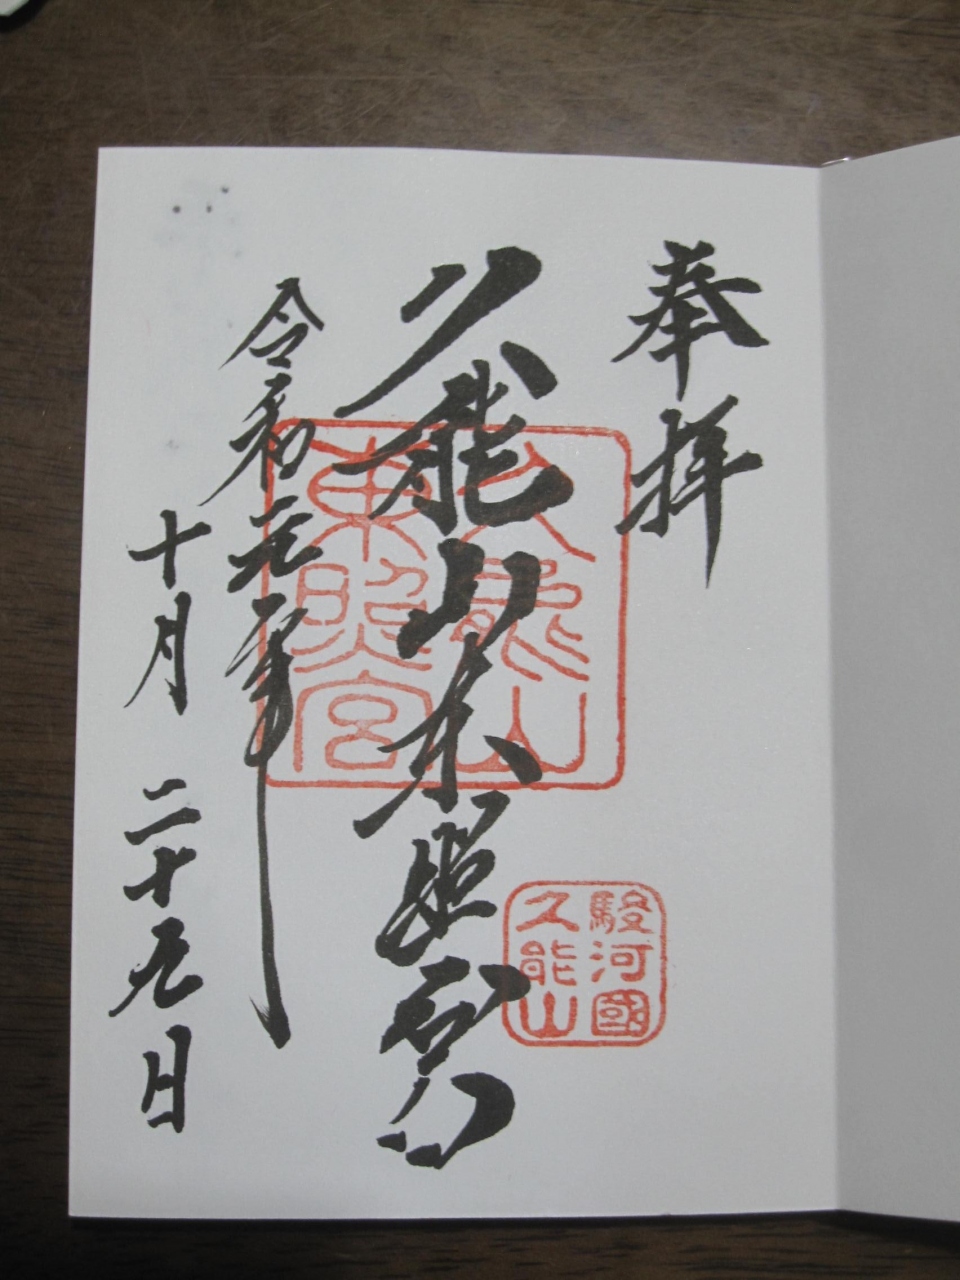 奉拝
久能山東照宮
令和元年
十月 二十九日
久能山
東照宮
駿河國
久能山